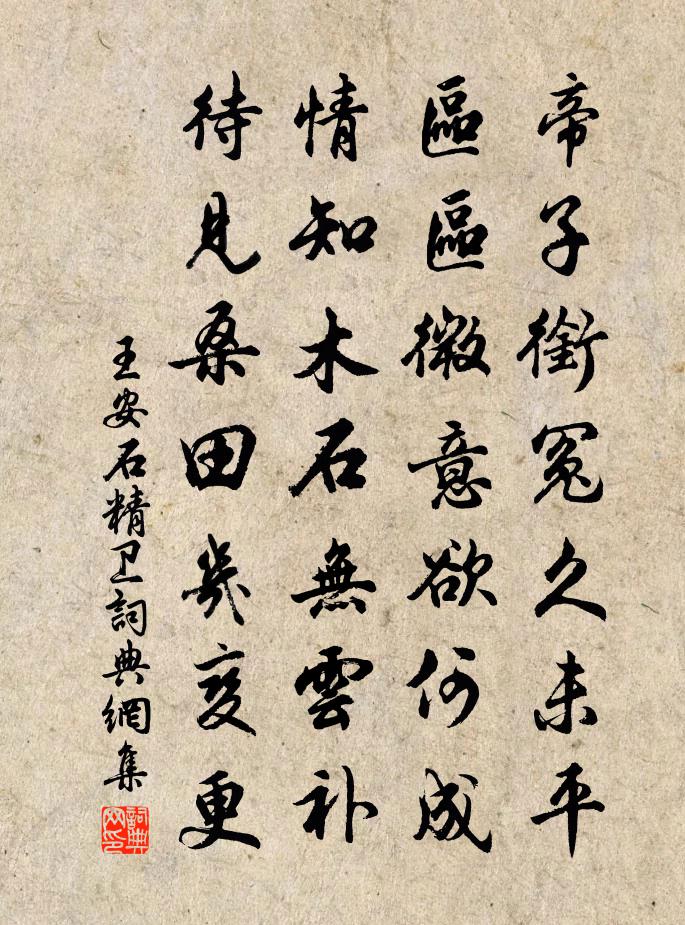 帝子銜冤久未平
區區微意欲何成
情知木石無雲补
待見桑田幾变更
王安石精卫詞典網集
詞典网印